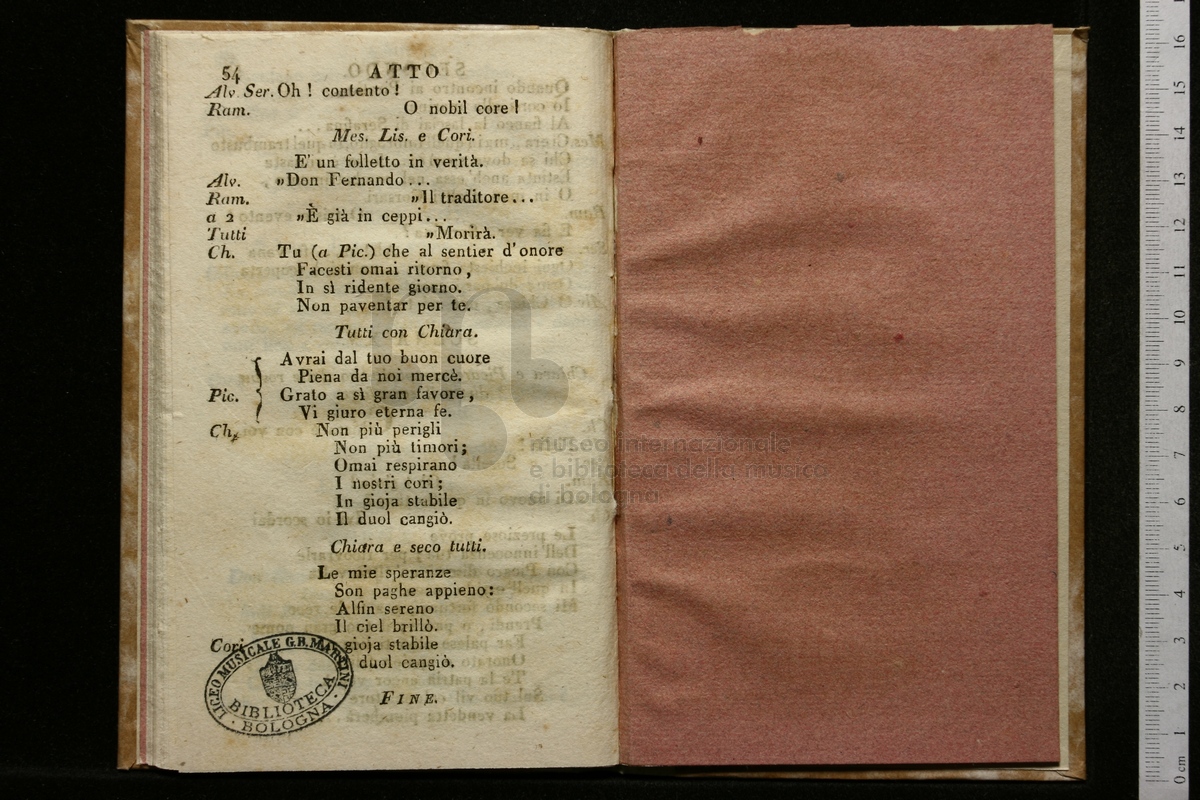 54 ATTO
Alv. Ser. Oh! contento!
Ram. O nobil core!
Mes. Lis. e Cori.
E' un folletto in verità.
Alv. „Don Fernando...
Ram. „Il traditore...
a 2 „È già in ceppi...
Tutti „Morirà.
Ch. Tu (a Pic.) che al sentier d'onore
Facesti omai ritorno,
In sì ridente giorno.
Non paventar per te.
Tutti con Chiara.
Avrai dal tuo buon cuore
Piena da noi mercè.
Pic. Grato a sì gran favore,
Vi giuro eterna fe.
Ch. Non più perigli
Non più timori;
Omai respirano
I nostri cori;
In gioja stabile
Il duol cangiò.
Chiara e seco tutti.
Le mie speranze
Son paghe appieno:
Alfin sereno
Il ciel brillò.
Cori gioja stabile
duol cangiò.
FINE.
LICEO MUSICALE G.B. MARTINI
BIBLIOTECA
· BOLOGNA ·
museo internazionale
e biblioteca della musica
di bologna
16
15
14
13
12
11
10
9
8
7
6
5
4
3
2
1
0 cm